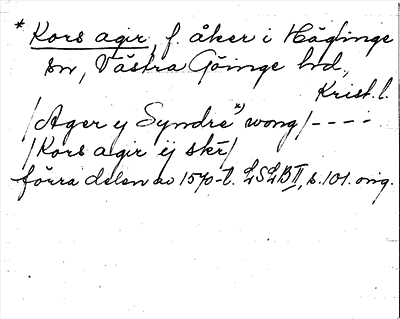 * Kors agir, f. åker i Häglinge
sn, Västra Göinge hd,
Krist. l.
/Ager y Syndre *) wong/----
/Kors agir ij skr/
förra delen av 1570-t. LSLB II, s. 101. orig.